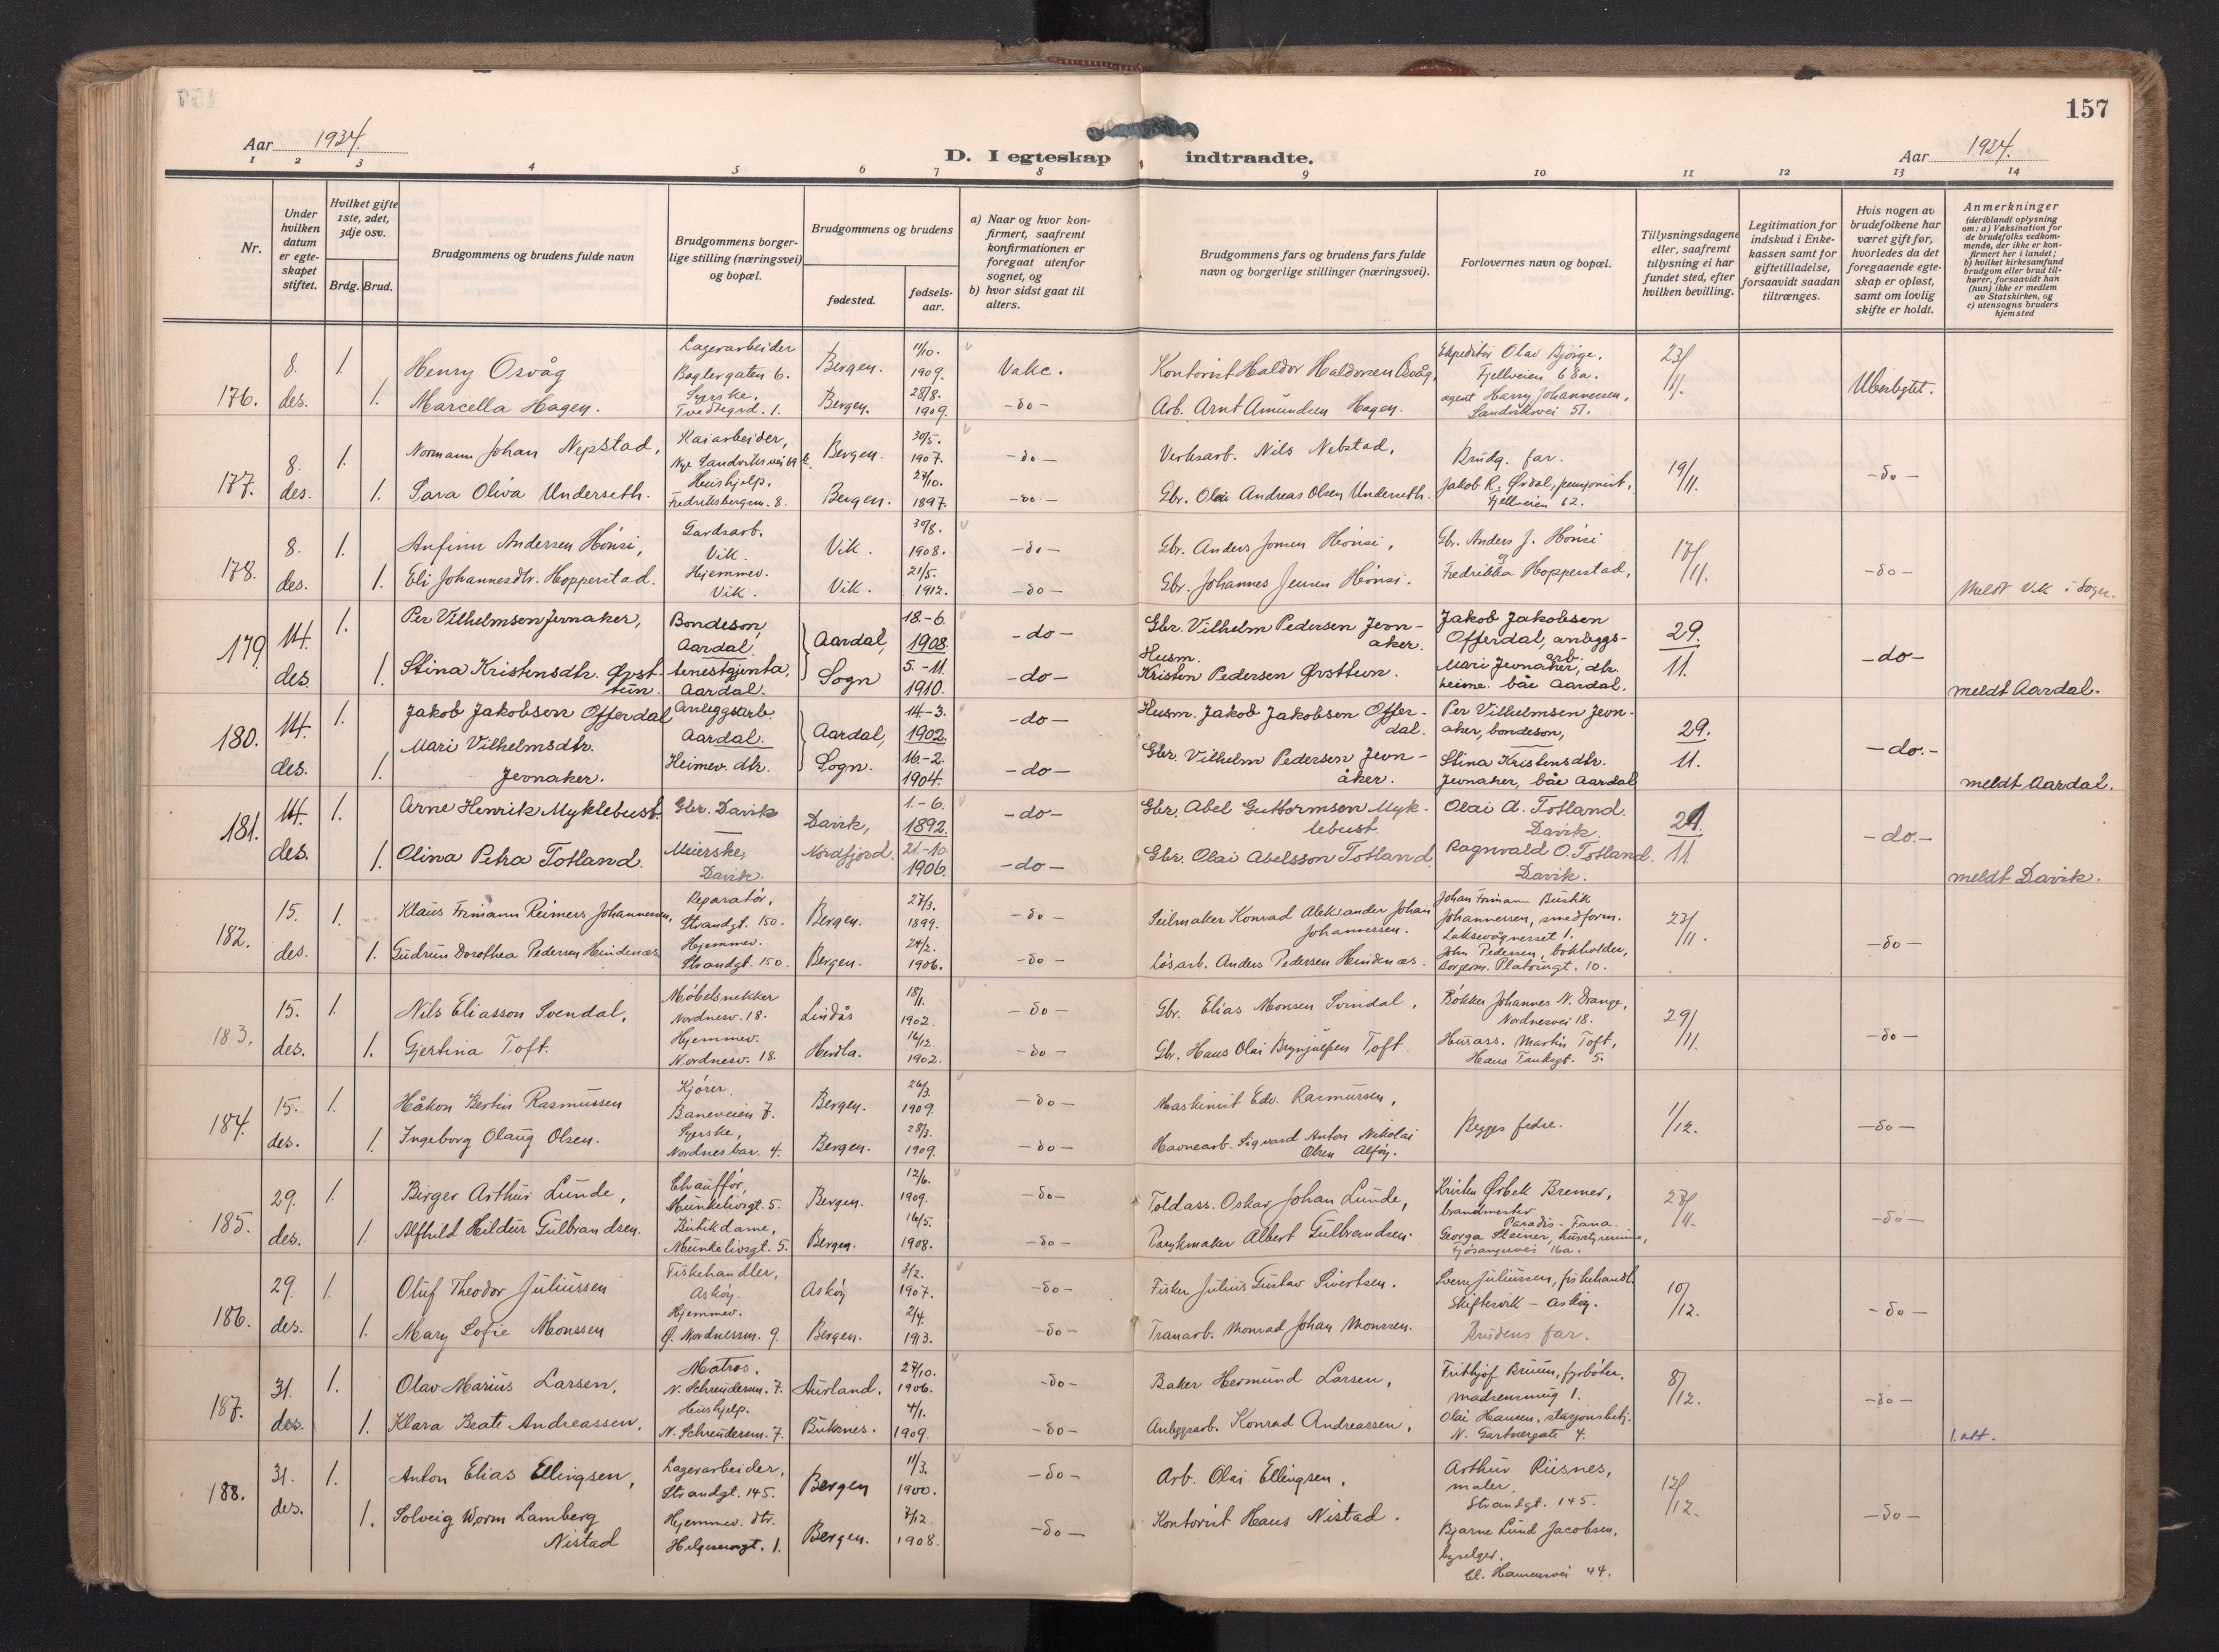 157
Aar 1934.
D. I egteskap indtraadte.
Aar 1934.
1 2 3 4 5 6 7 8 9 10 11 12 13 14
Nr.
Under hvilken datum er egteskapet stiftet.
Hvilket gifte 1ste, 2det, 3dje osv.
Brdg. Brud.
Brudgommens og brudens fulde navn
Brudgommens borgerlige stilling (næringsvei) og bopæl.
Brudgommens og brudens
fødested.
fødselsaar.
a) Naar og hvor konfirmert, saafremt konfirmationen er foregaat utenfor sognet, og
b) hvor sidst gaat til alters.
Brudgommens fars og brudens fars fulde navn og borgerlige stillinger (næringsvei).
Forlovernes navn og bopæl.
Tillysningsdagene eller, saafremt tillysning ei har fundet sted, efter hvilken bevilling.
Legitimation for indskud i Enkekassen samt for giftetilladelse, forsaavidt saadan tiltrænges.
Hvis nogen av brudefolkene har været gift før, hvorledes da det foregaaende egteskap er opløst, samt om lovlig skifte er holdt.
Anmerkninger
(deriblandt oplysning om: a) Vaksination for de brudefolks vedkommende, der ikke er konfirmert her i landet; b) hvilket kirkesamfund brudgom eller brud tilhører, forsaavidt han (hun) ikke er medlem av Statskirken, og c) utensogns bruders hjemsted
176. 8. des. 1. Henry Osvåg Lagerarbeider Baglergaten 6. Bergen. 11/10. 1909. Vake. Kontorist Haldor Haldorsen Osvåg, Ekspeditør Olav Bjørge, Fjellveien 68a. 23/11. Ubesigtet.
1. Marcella Hagen. Syerske, Tvedtegrd. 1. Bergen. 28/8. 1909 -do- Arb. Arnt Amundsen Hagen. agent Harry Johannessen, Sandviksvei 51.
177. 8. des. 1. Normann Johan Nepstad, Kaiarbeider, Nye Sandviksvei 69 Bergen. 30/5. 1907. -do- Verksarb. Nils Nebstad, Brudg. far. 19/11. -do-
1. Sara Oliva Underseth. Hushjelp. Fredriksbergsm. 8. Bergen. 27/10. 1897. -do- Gbr. Olai Andreas Olsen Underseth. Jakob R. Øvdal, pensjonist, Fjellveien 62.
178. 8. des. 1. Anfinn Andersen Hönsi, Gardsarb. Vik. Vik. 30/8. 1908. -do- Gbr. Anders Jonsen Hönsi, Gbr. Anders J. Hönsi og 17/11. -do-
1. Eli Johannesdtr. Hopperstad. Hjemmev. Vik. Vik. 21/5. 1912. -do- Gbr. Johannes Jensen Hönsi. Fredrikka Hopperstad, Meldt Vik i Sogn.
179. 14. des. 1. Per Vilhelmsen Jevnaker, Bondeson, Aardal. Aardal, 18.-6. 1908. -do- Gbr. Vilhelm Pedersen Jevnaker. Jakob Jakobsen Offerdal, anleggsarb. 29. 11. -do-
1. Stina Kristensdtr. Øvsttun. tenestgjenta, Aardal. Sogn 5.-11. 1910. -do- Husm. Kristen Pedersen Øvsttun. Mari Jevnaker, dtr. heime. båe Aardal. meldt Aardal.
180. 14. des. 1. Jakob Jakobsen Offerdal Anleggsarb. Aardal. Aardal, 14.-3. 1902. -do- Husm. Jakob Jakobsen Offerdal. Per Vilhelmsen Jevnaker, bondeson, 29. 11. -do.-
1. Mari Vilhelmsdtr. Jevnaker. Heimev. dtr. Sogn. 16.-2. 1904. -do- Gbr. Vilhelm Pedersen Jevnåker. Stina Kristensdtr. Jevnaker, båe Aardal meldt Aardal.
181. 14. des. 1. Arne Henrik Myklebust. Gbr. Davik Davik, 1.-6. 1892. -do- Gbr. Abel Guttormsen Myklebust. Olai A. Totland. Davik. 11 -do.-
1. Olina Petra Totland. Meierske, Davik. Nordfjord. 21.-10. 1906. -do- Gbr. Olai Abelsson Totland. Ragnvald O. Totland. Davik. meldt Davik.
182. 15. des. 1. Klaus Frimann Reimers Johannessen, Reparatør, Strandgt. 150. Bergen. 27/3. 1899. -do- Seilmaker Konrad Aleksander Johan Johannessen. Johan Friman Johannessen, smedform. Laksevågnesset 1. 23/11. -do-
1. Gudrun Dorothea Pedersen Heindenæs Hjemmev. Strandgt. 150. Bergen. 24/2. 1906. -do- Løsarb. Anders Pedersen Heindenæs. John Pedersen, bokholder, Borgerm. Platougt. 10.
183. 15. des. 1. Nils Eliasson Svendal, Møbelsnekker Nordnesv. 18. Lindås 18/1. 1902. -do- Gbr. Elias Monsen Svindal, Bökker Johannes N. Drange, Nordnesvei 18. 29/11. -do-
1. Gjertina Toft. Hjemmev. Nordnesv. 18. Herdla. 16/12. 1902. -do- Gbr. Hans Olai Brynjulfsen Toft. Husass. Martin Toft, Hans Tanksgt. 5.
184. 15. des. 1. Håkon Bertin Rasmussen Kjører. Baneveien 7. Bergen. 26/3. 1909. -do- Maskinist Edv. Rasmussen, Begges fedre. 1/12. -do-
1. Ingeborg Olaug Olsen. Syerske, Nordnes bar. 4. Bergen. 28/3. 1909. -do- Havnearb. Sigvard Anton Nikolai Olsen Alföy.
185. 29. des. 1. Birger Arthur Lunde, Chauffør, Munkelivsgt. 5. Bergen. 12/6. 1909. -do- Toldass. Oskar Johan Lunde, Kristen Ørbek Bremer, brandmester Paradis - Fana. 28/11. -do-
1. Alfhild Hildur Gulbrandsen. Butikdame, Munkelivsgt. 5. Bergen. 16/5. 1908. -do- Parykmaker Albert Gulbrandsen. Georga Steiner, Fjösangervei 16a.
186. 29. des. 1. Oluf Theodor Juliussen Fiskehandler, Asköy. Asköy 3/2. 1907. -do- Fisker Julius Gustav Sivertsen. Sverre Juliussen, fiskehandl. Skiftesvik - Asköy. 10/12. -do-
1. Mary Sofie Monssen Hjemmev. Ø. Nordnessm. 9. Bergen. 2/4. 1913. -do- Tranarb. Monrad Johan Monssen. Brudens far.
187. 31. des. 1. Olav Marius Larsen, Matros. N. Schreudersm. 7. Aurland. 27/10. 1906. -do- Baker Hermund Larsen, Frithjof Bruun, fyrböter, 1. 8/12. -do-
1. Klara Beate Andreassen, Hushjelp. N. Schreudersm. 7. Buksnes. 4/1. 1909. -do- Anleggsarb. Konrad Andreassen, Olai Hansen, stasjonsbetj. N. Gartnergate 4. 1. alt.
188. 31. des. 1. Anton Elias Ellingsen, Lagerarbeider, Strandgt. 145. Bergen 11/3. 1900. -do- Arb. Olai Ellingsen, Arthur Risnes, maler. Strandgt. 145. 12/12. -do-
1. Solveig Worm Lamberg Nistad Hjemmev. dtr. Helgesensgt. 1. Bergen. 7/12 1908. -do- Kontorist Hans Nistad. Bjarne Lund Jacobsen, byselger, Cl. Hansensvei 44.